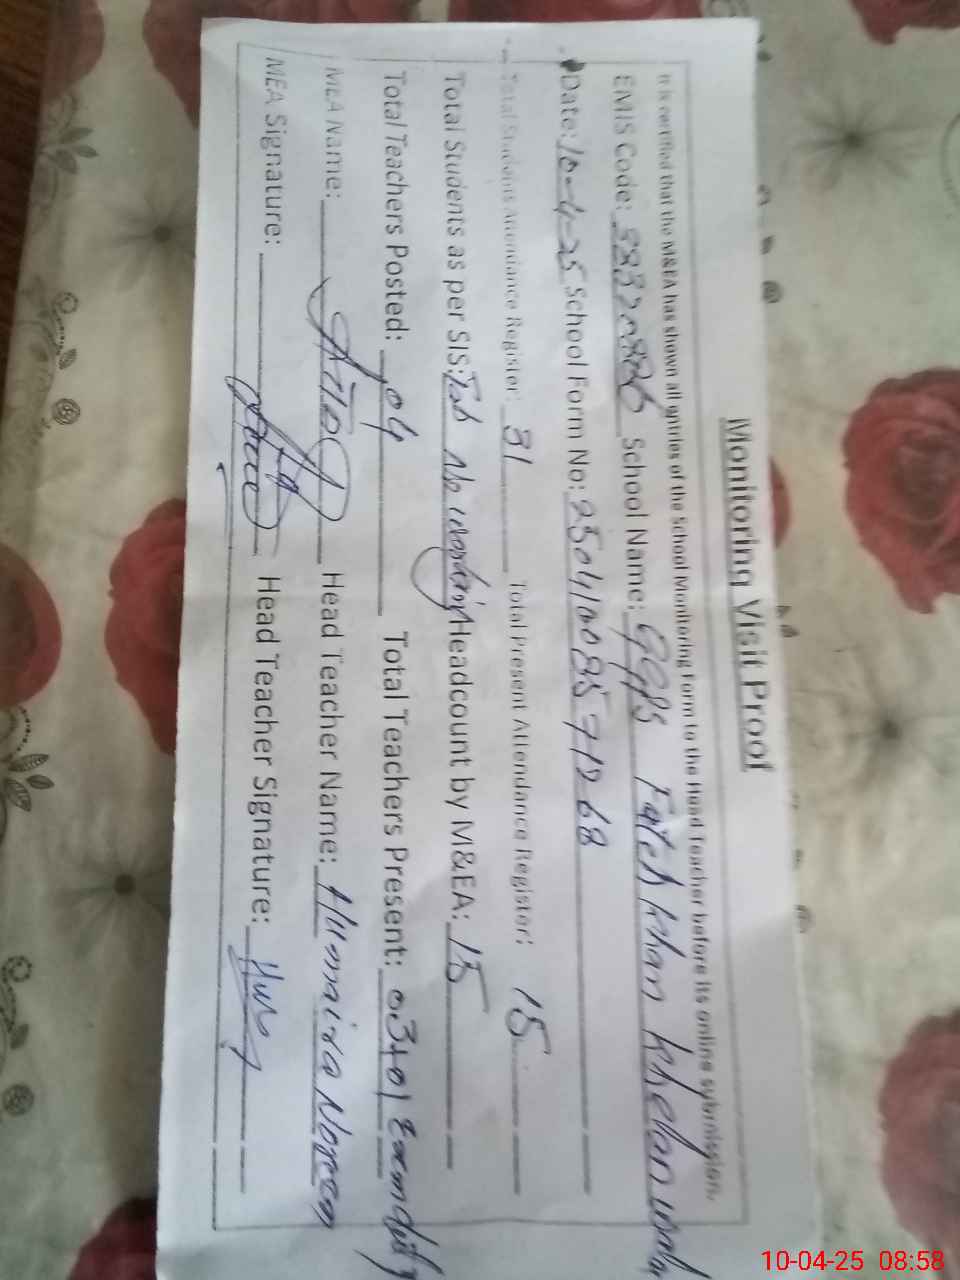 Monitoring Visit Proof
It is certified that the M&EA has shown all entries of the School Monitoring Form to the Head Teacher before its online submission.
EMIS Code: School Name: GGPS Fateh Khan
Date: 10-4-25 School Form No: 25041008571268
Total Students Attendance Register: 31 Total Present Attendance Register: 15
Total Students as per SIS: Tab No working Headcount by M&EA: 15
Total Teachers Posted: 04 Total Teachers Present: 03+01 Exam duty
MEA Name: Head Teacher Name: Humaira Noreen
MEA Signature: Head Teacher Signature:
10-04-25 08:58